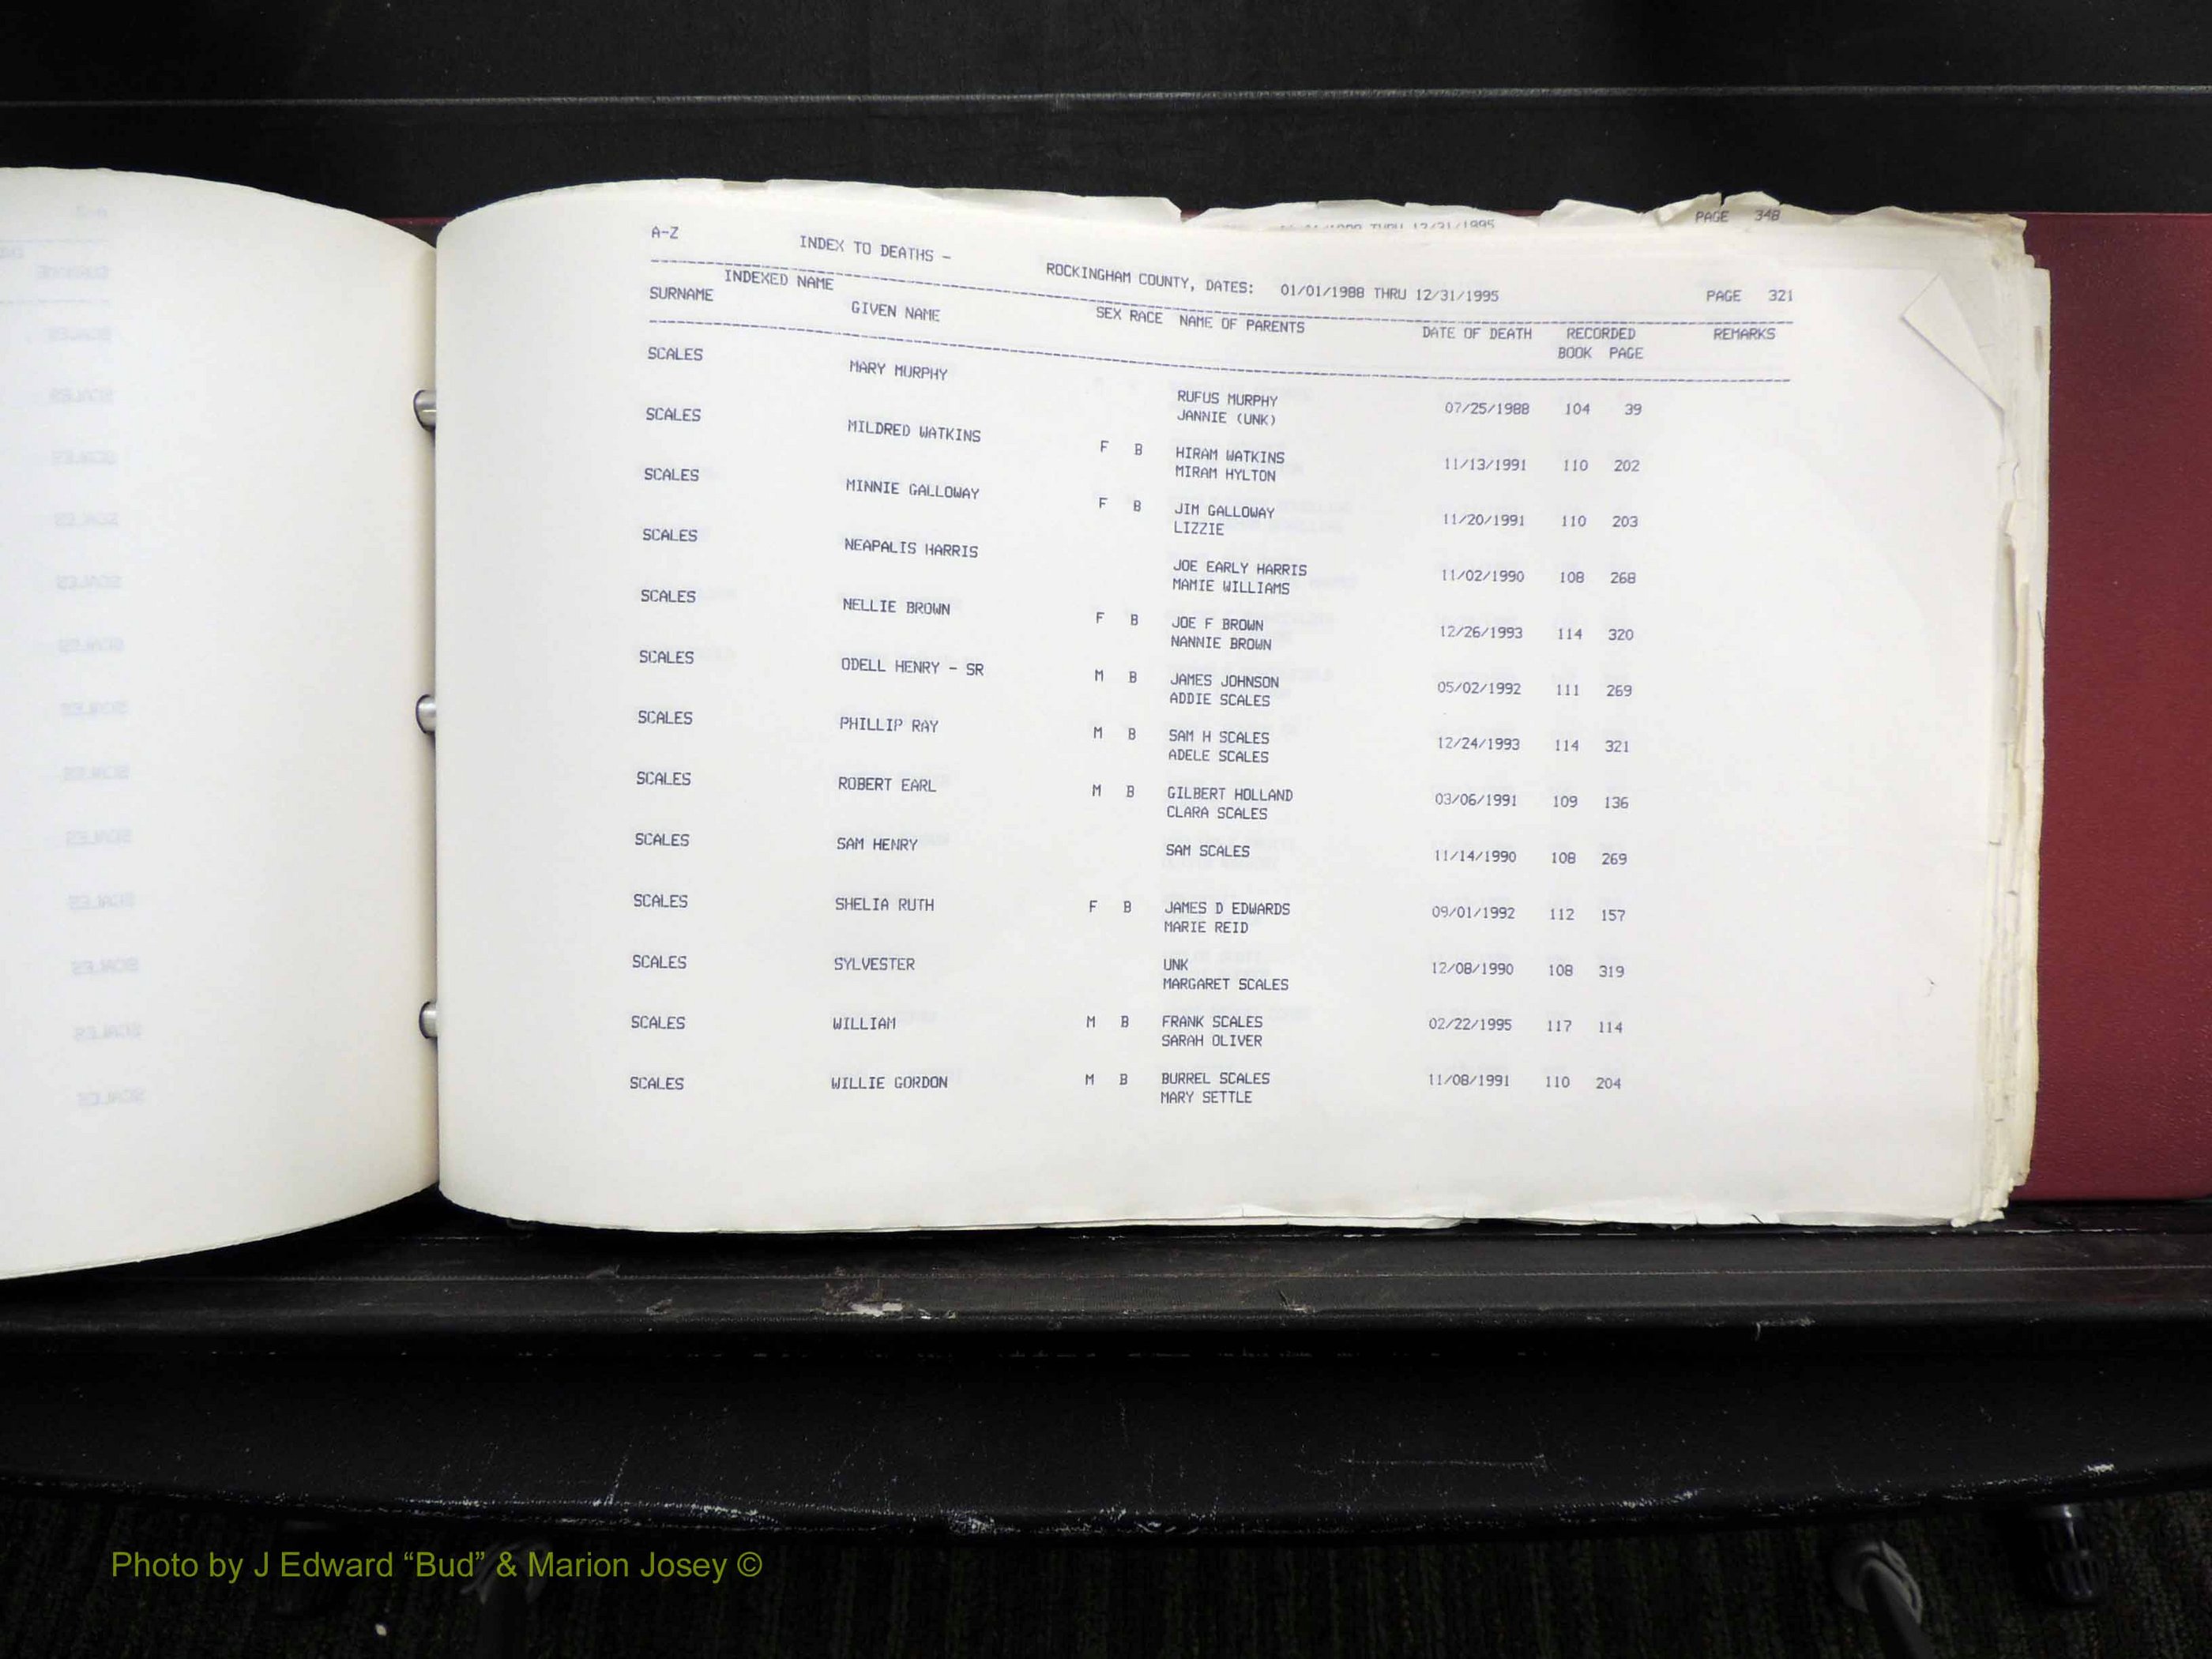 PAGE 348
A-Z INDEX TO DEATHS - ROCKINGHAM COUNTY, DATES: 01/01/1988 THRU 12/31/1995 PAGE 321
INDEXED NAME
SURNAME GIVEN NAME SEX RACE NAME OF PARENTS DATE OF DEATH RECORDED REMARKS
BOOK PAGE
SCALES MARY MURPHY RUFUS MURPHY 07/25/1988 104 39
JANNIE (UNK)
SCALES MILDRED WATKINS F B HIRAM WATKINS 11/13/1991 110 202
MIRAM HYLTON
SCALES MINNIE GALLOWAY F B JIM GALLOWAY 11/20/1991 110 203
LIZZIE
SCALES NEAPALIS HARRIS JOE EARLY HARRIS 11/02/1990 108 268
MAMIE WILLIAMS
SCALES NELLIE BROWN F B JOE F BROWN 12/26/1993 114 320
NANNIE BROWN
SCALES ODELL HENRY - SR M B JAMES JOHNSON 05/02/1992 111 269
ADDIE SCALES
SCALES PHILLIP RAY M B SAM H SCALES 12/24/1993 114 321
ADELE SCALES
SCALES ROBERT EARL M B GILBERT HOLLAND 03/06/1991 109 136
CLARA SCALES
SCALES SAM HENRY SAM SCALES 11/14/1990 108 269
SCALES SHELIA RUTH F B JAMES D EDWARDS 09/01/1992 112 157
MARIE REID
SCALES SYLVESTER UNK 12/08/1990 108 319
MARGARET SCALES
SCALES WILLIAM M B FRANK SCALES 02/22/1995 117 114
SARAH OLIVER
SCALES WILLIE GORDON M B BURREL SCALES 11/08/1991 110 204
MARY SETTLE
Photo by J Edward “Bud” & Marion Josey ©